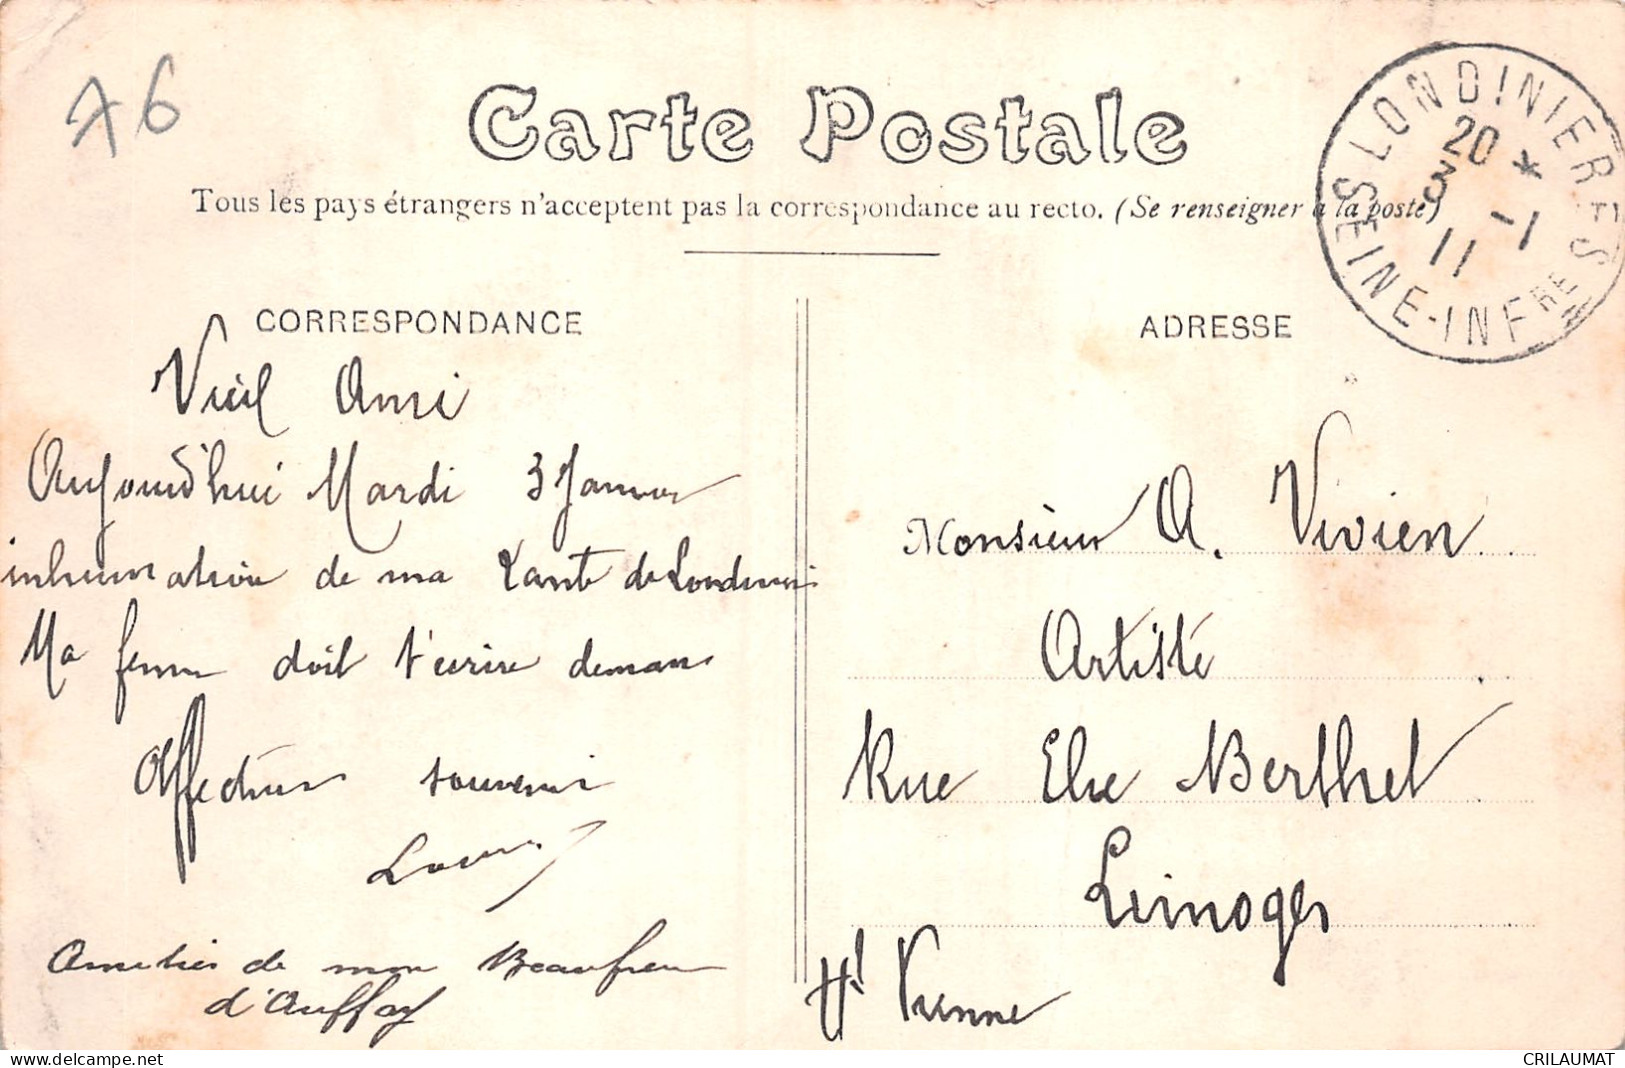 76
Carte Postale
Tous les pays étrangers n'acceptent pas la correspondance au recto. (Se renseigner à la poste)
LONDINIERES
20 *
3 -1
11
SEINE-INFRE
CORRESPONDANCE
Vieil Ami
Aujourd'hui Mardi 3 Janvier
inhumation de ma Tante de Londinières
Ma femme doit t'écrire demain
Affectueux souvenir
Amitiés de mon Beaufrère
d'Auffay
ADRESSE
Monsieur A. Vivien
Artiste
Rue Elie Berthet
Limoges
Hte Vienne
www.delcampe.net
CRILAUMAT